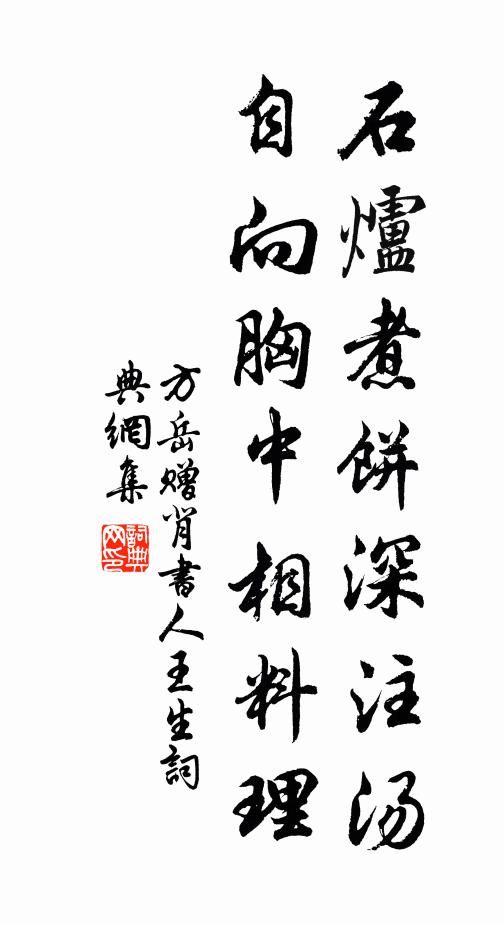 石爐煮餅深注汤
自向胸中相料理
方岳赠肖書人王生詞
典網集
詞典网印